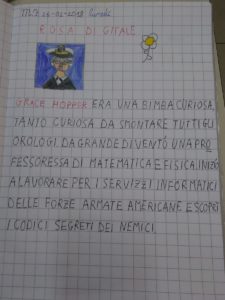 26-02-2018 lunedì
ROSA DI GITALE
GRACE HOPPER ERA UNA BIMBA CURIOSA,
TANTO CURIOSA DA SMONTARE TUTTI GLI
OROLOGI DA GRANDE DIVENTÒ UNA PRO
FESSORESSA DI MATEMATICA E FISICA. INIZIÒ
A LAVORARE PER I SERVIZZI INFORMATICI
DELLE FORZE ARMATE AMERICANE E SCOPRÌ
I CODICI SEGRETI DEI NEMICI.